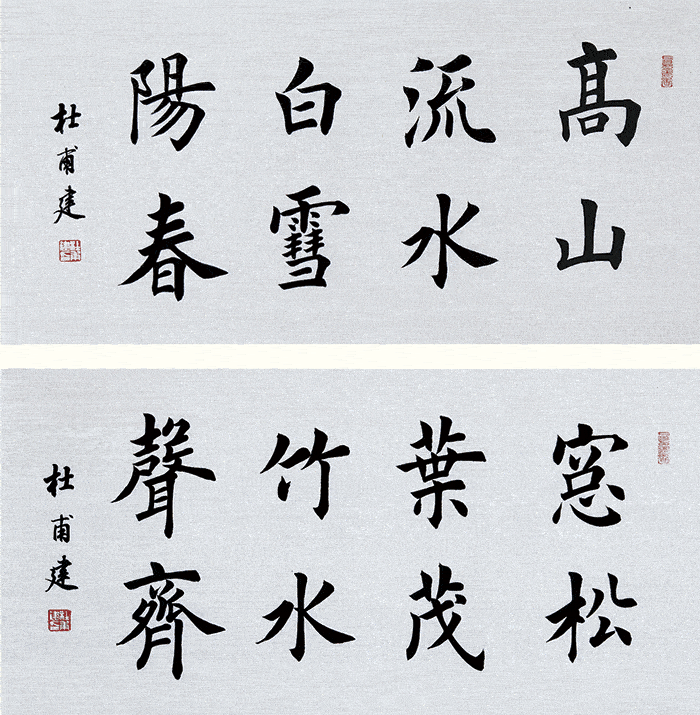 髙山
流水
白䨮
陽春
杜甫建
窓松
葉茂
竹水
聲齊
杜甫建